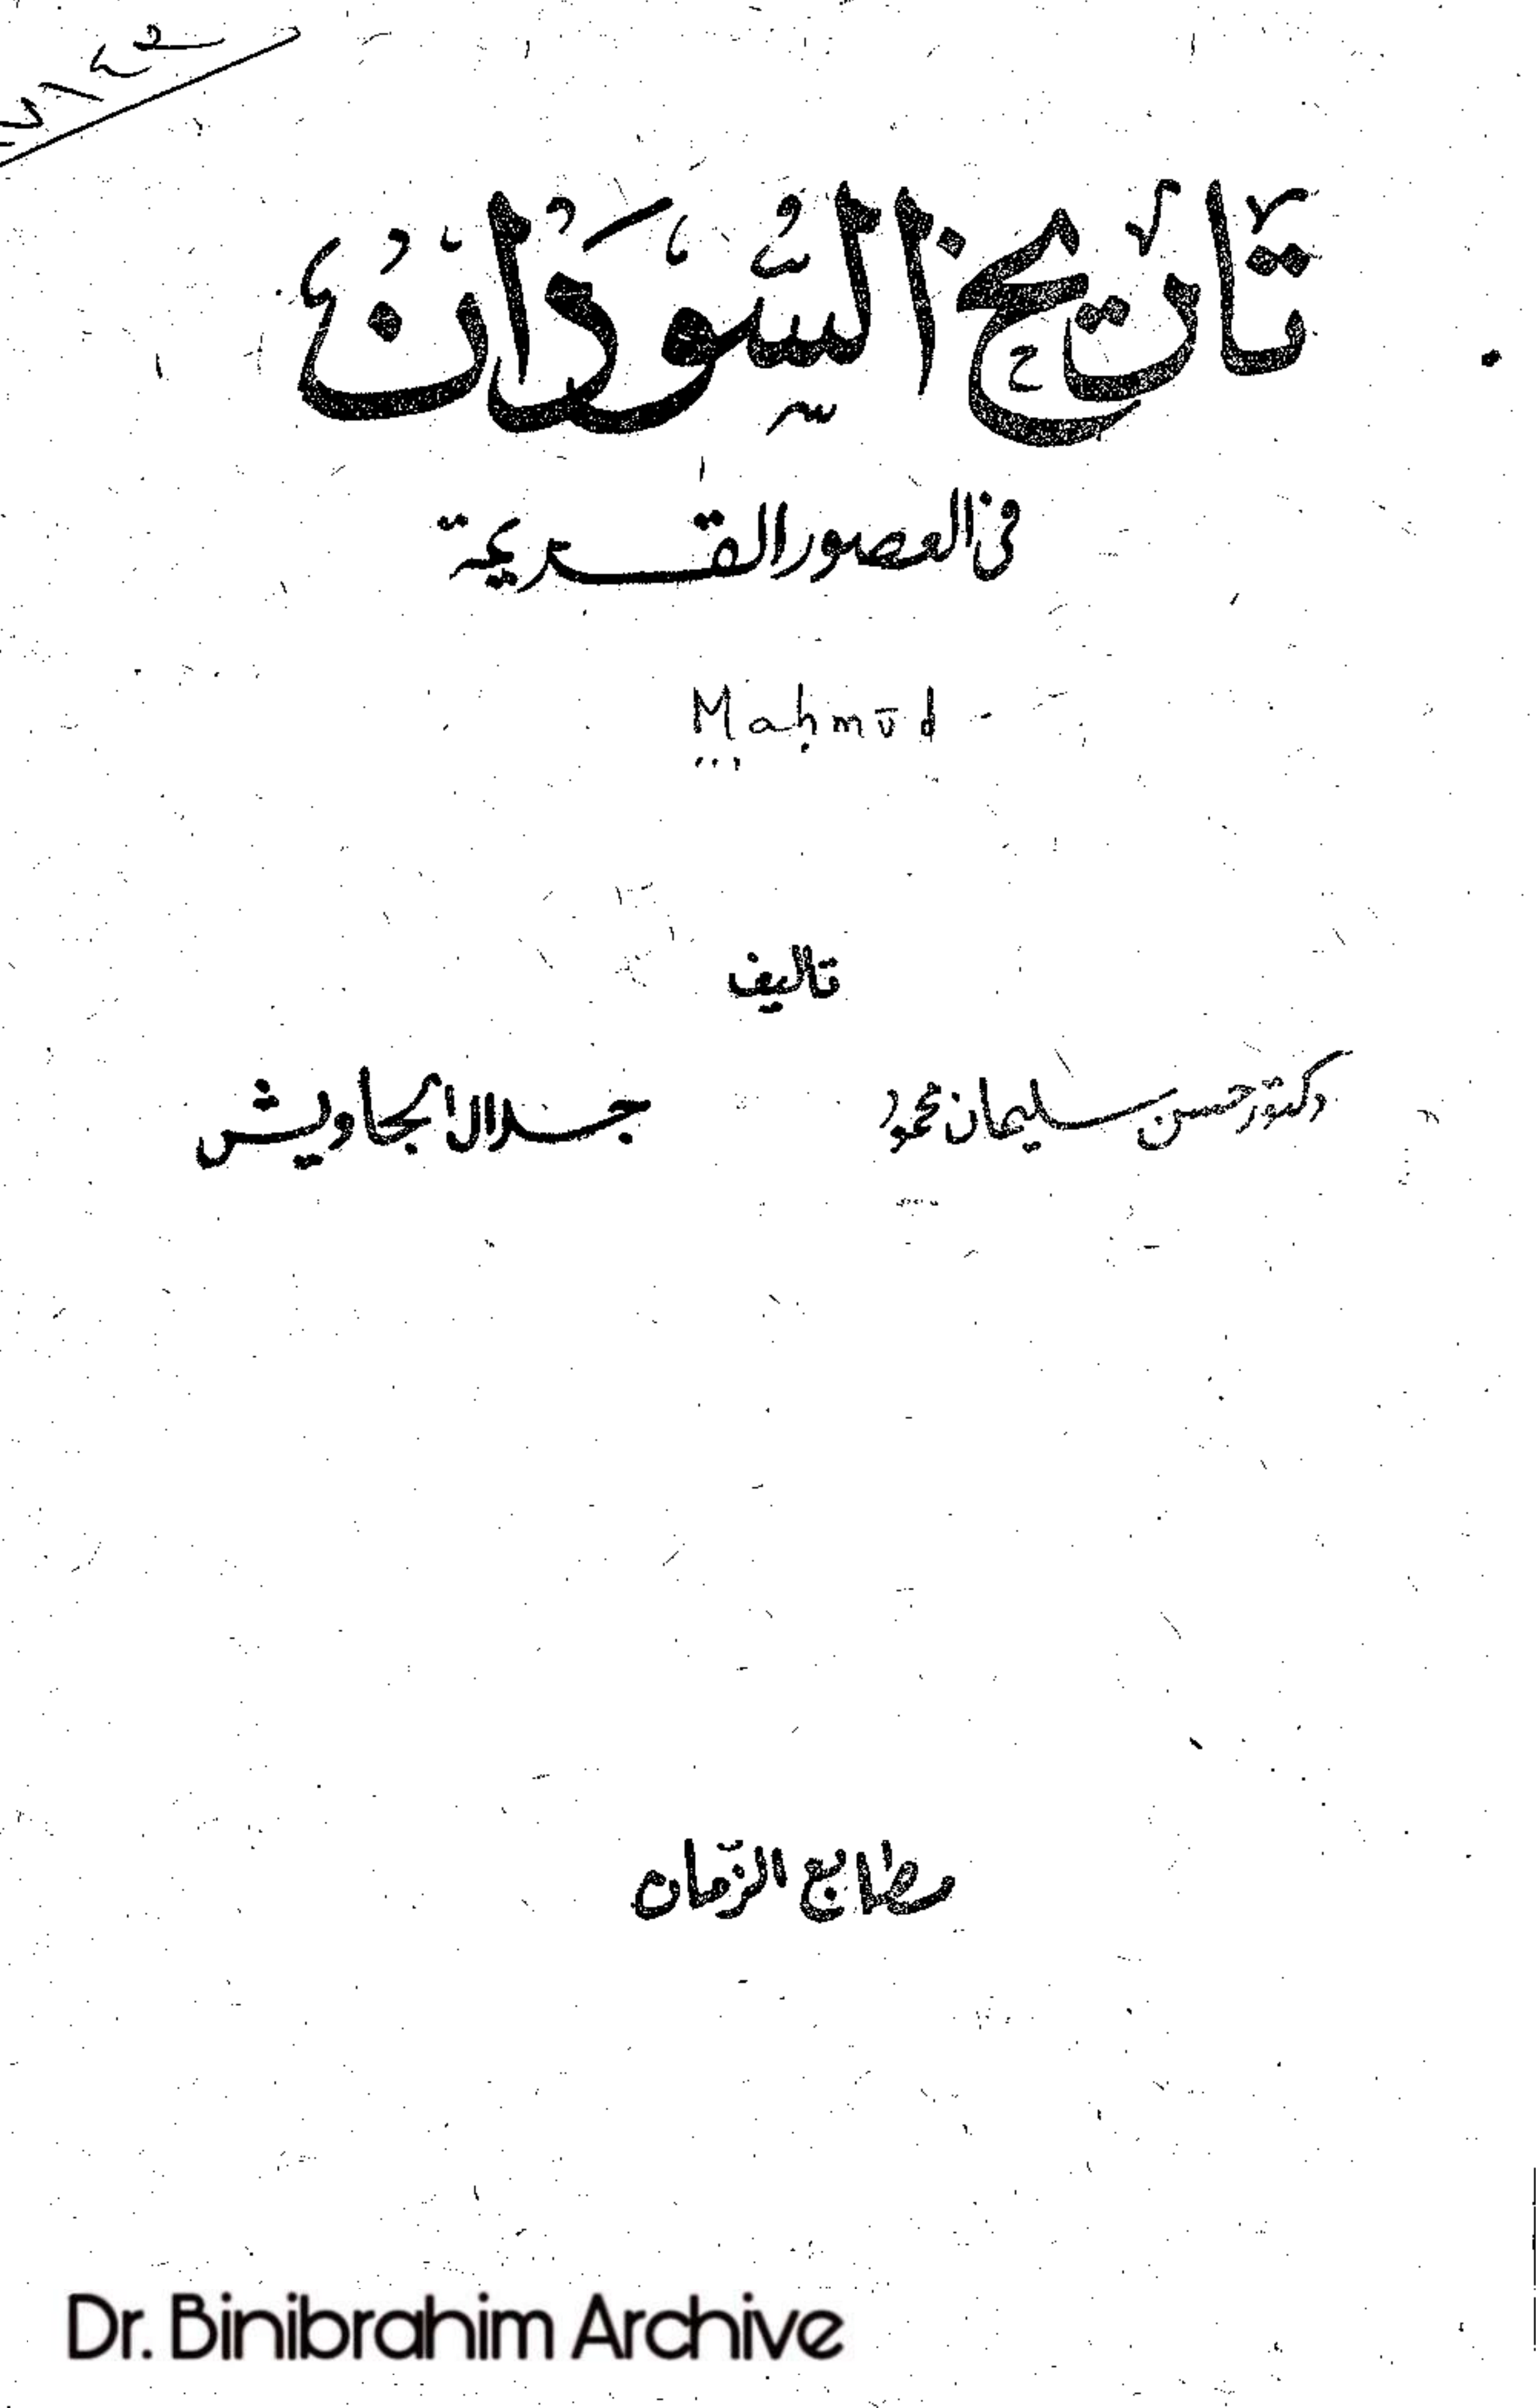 تاريخ السودان
في العصور القديمة
Mahmūd
تاليف
دكتور حسن سليمان محمود
جلال الجاويش
مطابع الزمان
Dr. Binibrahim Archive